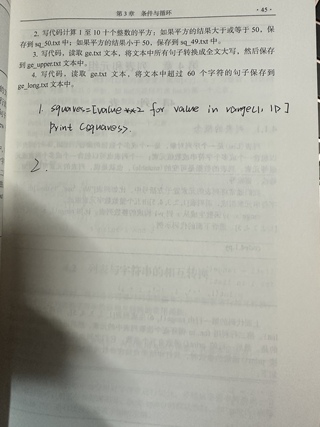 第 3 章 条件与循环 · 45 ·
2. 写代码计算 1 至 10 十个整数的平方；如果平方的结果大于或等于 50，保
存到 sq_50.txt 中；如果平方的结果小于 50，保存到 sq_49.txt 中。
3. 写代码，读取 ge.txt 文本，将文本中所有句子转换成全文大写，然后保存
到 ge_upper.txt 文本中。
4. 写代码，读取 ge.txt 文本，将文本中超过 60 个字符的句子保存到
ge_long.txt 文本中。
1. squares=[value**2 for value in range(1, 11)]
print (squares).
2.